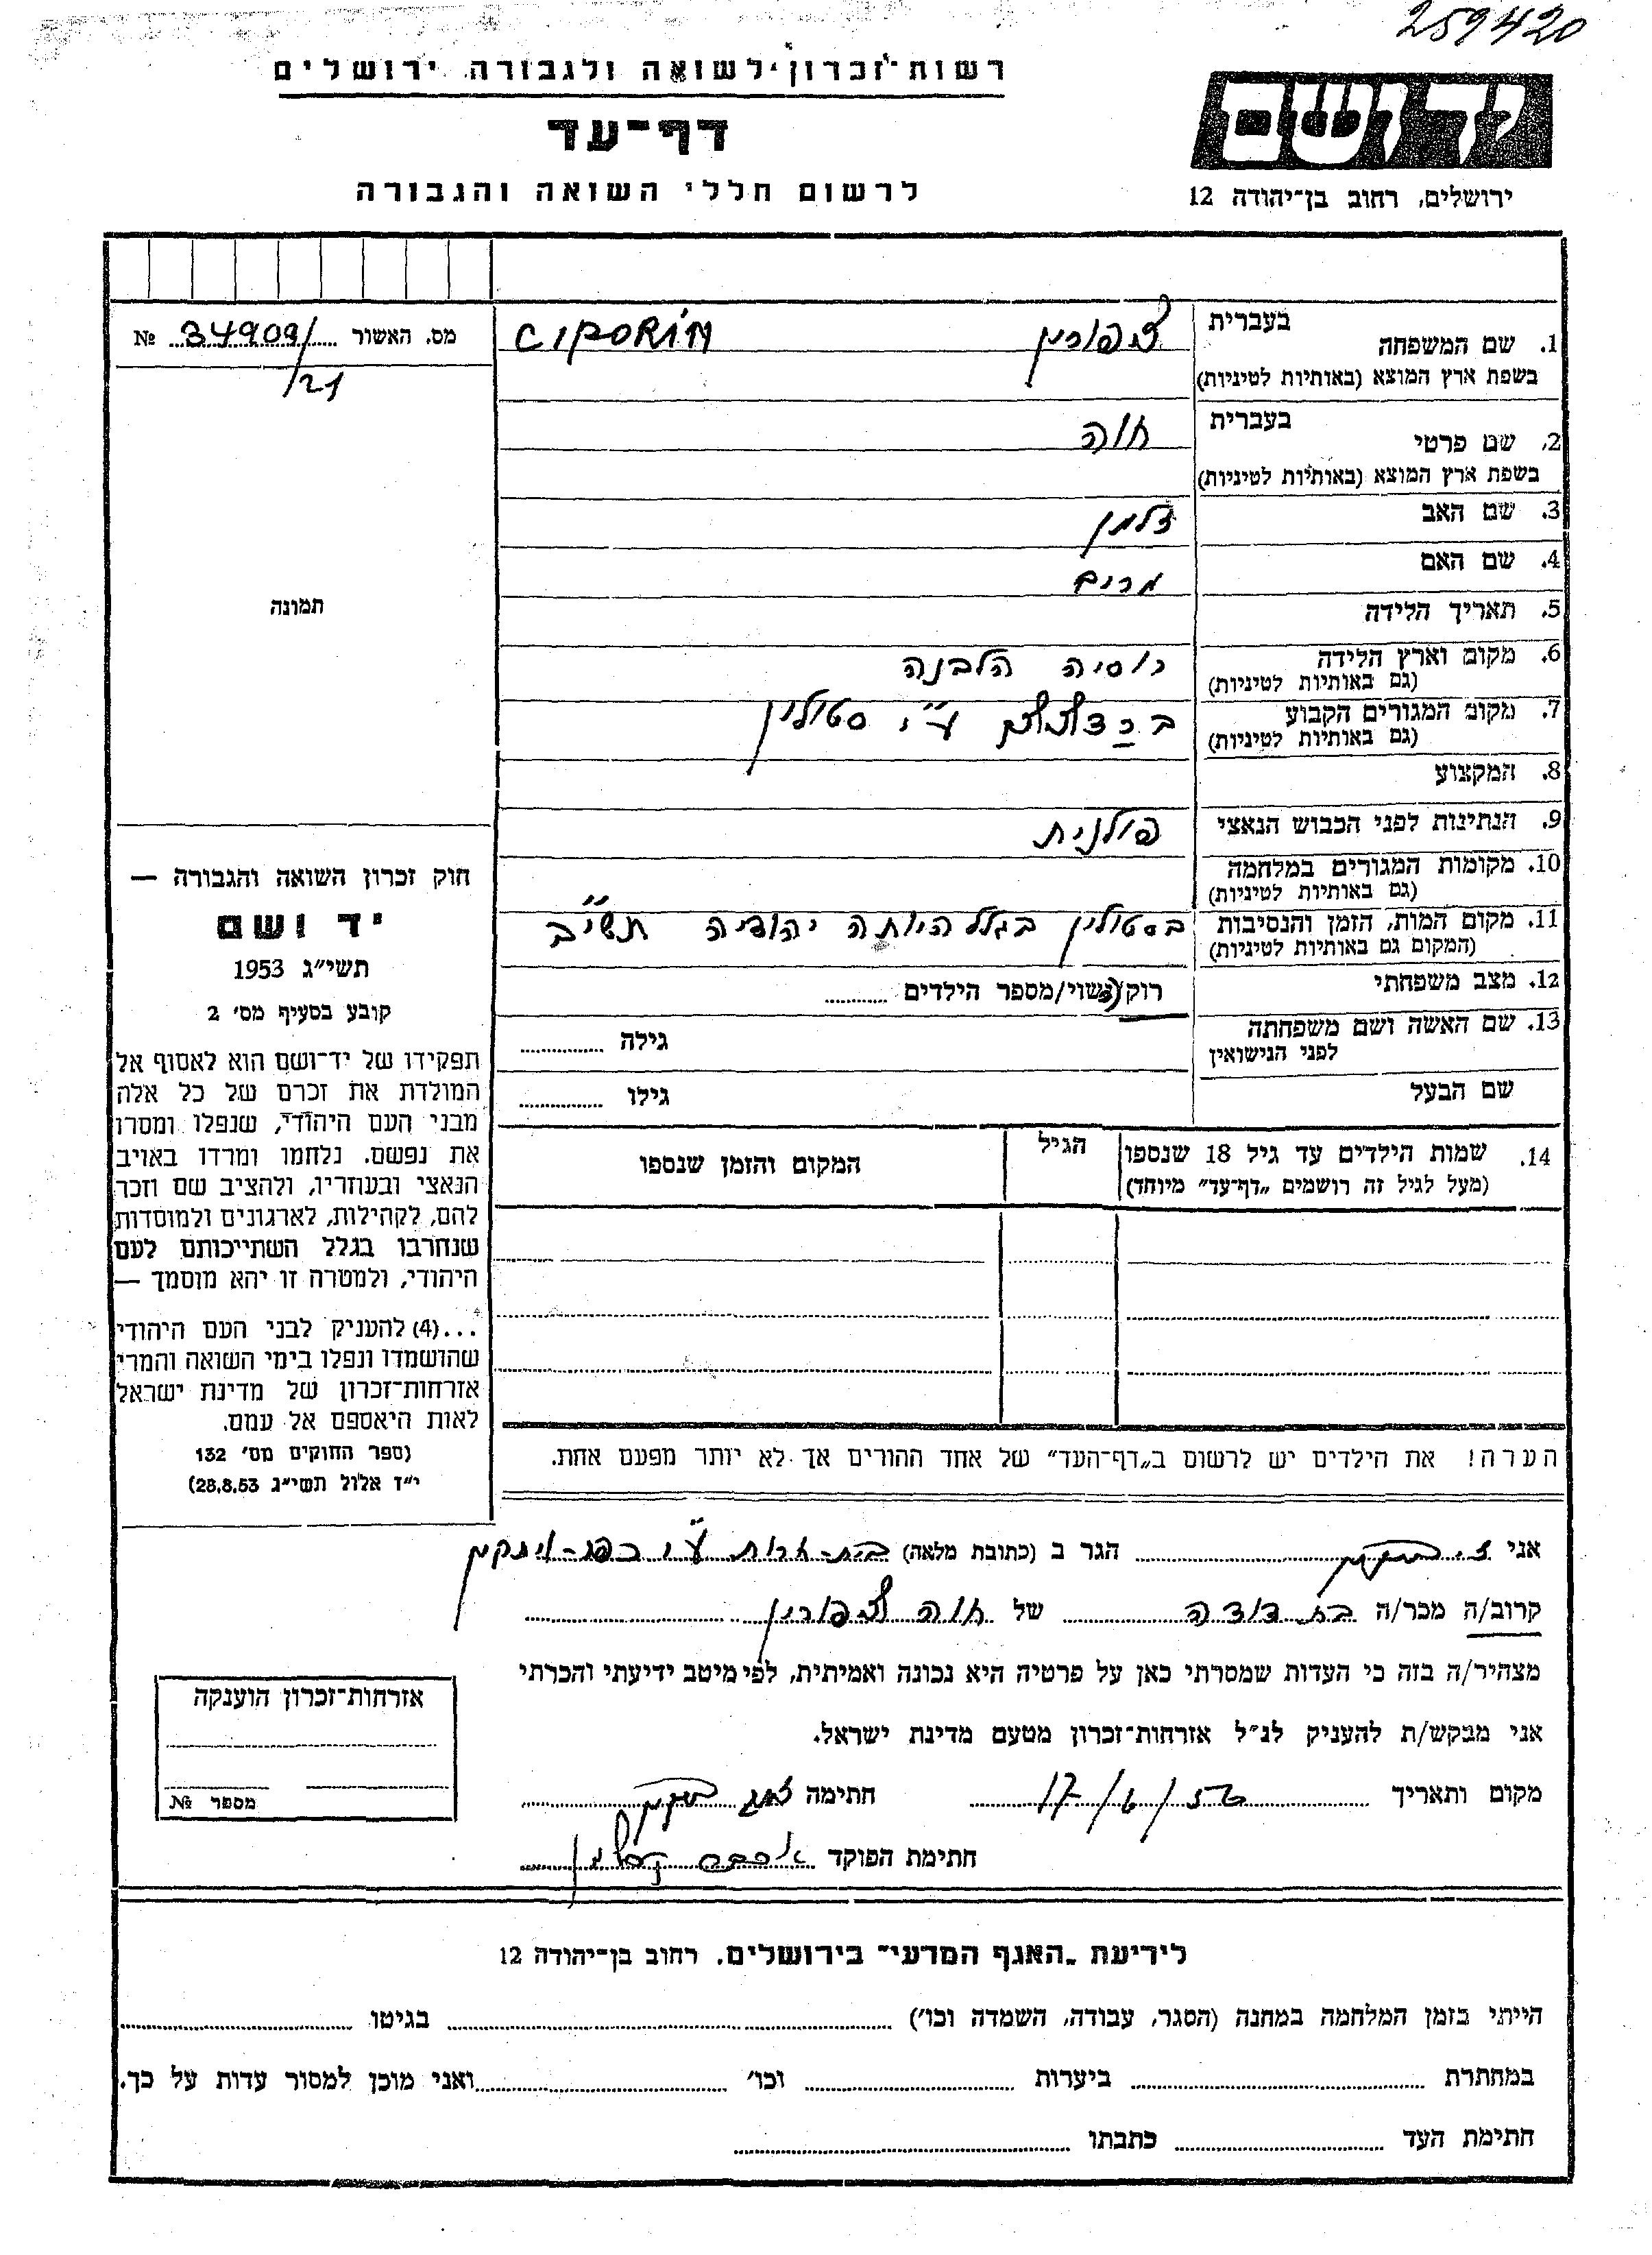 259420
רשות־זכרון לשואה ולגבורה ירושלים
דף־עד
לרשום חללי השואה והגבורה
יד ושם
ירושלים, רחוב בן־יהודה 12
מס. האשור 34909/ №
/21
1. שם המשפחה
בעברית
צפורין
CIPORIN
בשפת ארץ המוצא (באותיות לטיניות)
2. שם פרטי
בעברית
חוה
בשפת ארץ המוצא (באותיות לטיניות)
3. שם האב
זלמן
4. שם האם
מרים
5. תאריך הלידה
6. מקום וארץ הלידה
(גם באותיות לטיניות)
רוסיה הלבנה
7. מקום המגורים הקבוע
(גם באותיות לטיניות)
ע"י סטולין
8. המקצוע
9. הנתינות לפני הכבוש הנאצי
פולנית
10. מקומות המגורים במלחמה
(גם באותיות לטיניות)
11. מקום המות, הזמן והנסיבות
(המקום גם באותיות לטיניות)
בסטולין בגלל היותה יהודיה תש"ב
12. מצב משפחתי
רוק/נשוי/מספר הילדים
13. שם האשה ושם משפחתה
לפני הנישואין
גילה
שם הבעל
גילו
14. שמות הילדים עד גיל 18 שנספו
(מעל לגיל זה רושמים "דף־עד" מיוחד)
הגיל
המקום והזמן שנספו
הערה! את הילדים יש לרשום ב"דף־העד" של אחד ההורים אך לא יותר מפעם אחת.
תמונה
חוק זכרון השואה והגבורה —
יד ושם
תשי"ג 1953
קובע בסעיף מס' 2
תפקידו של יד־ושם הוא לאסוף אל
המולדת את זכרם של כל אלה
מבני העם היהודי, שנפלו ומסרו
את נפשם, נלחמו ומרדו באויב
הנאצי ובעוזריו, ולהציב שם וזכר
להם, לקהילות, לארגונים ולמוסדות
שנחרבו בגלל השתייכותם לעם
היהודי, ולמטרה זו יהא מוסמך —
...(4) להעניק לבני העם היהודי
שהושמדו ונפלו בימי השואה והמרי
אזרחות־זכרון של מדינת ישראל
לאות היאספם אל עמם.
(ספר החוקים מס' 132
י"ז אלול תשי"ג 28.8.53)
אני
הגר ב (כתובת מלאה) ע"י כפר-ויתקין
קרוב/ה מכר/ה בת דודה של חוה צפורין
מצהיר/ה בזה כי העדות שמסרתי כאן על פרטיה היא נכונה ואמיתית, לפי מיטב ידיעתי והכרתי
אני מבקש/ת להעניק לנ"ל אזרחות־זכרון מטעם מדינת ישראל.
מקום ותאריך
חתימה
חתימת הפוקד
אזרחות־זכרון הוענקה
מספר №
לידיעת "האגף המדעי" בירושלים, רחוב בן־יהודה 12
הייתי בזמן המלחמה במחנה (הסגר, עבודה, השמדה וכו') בגיטו
במחתרת ביערות וכו' ואני מוכן למסור עדות על כך.
חתימת העד כתבתו